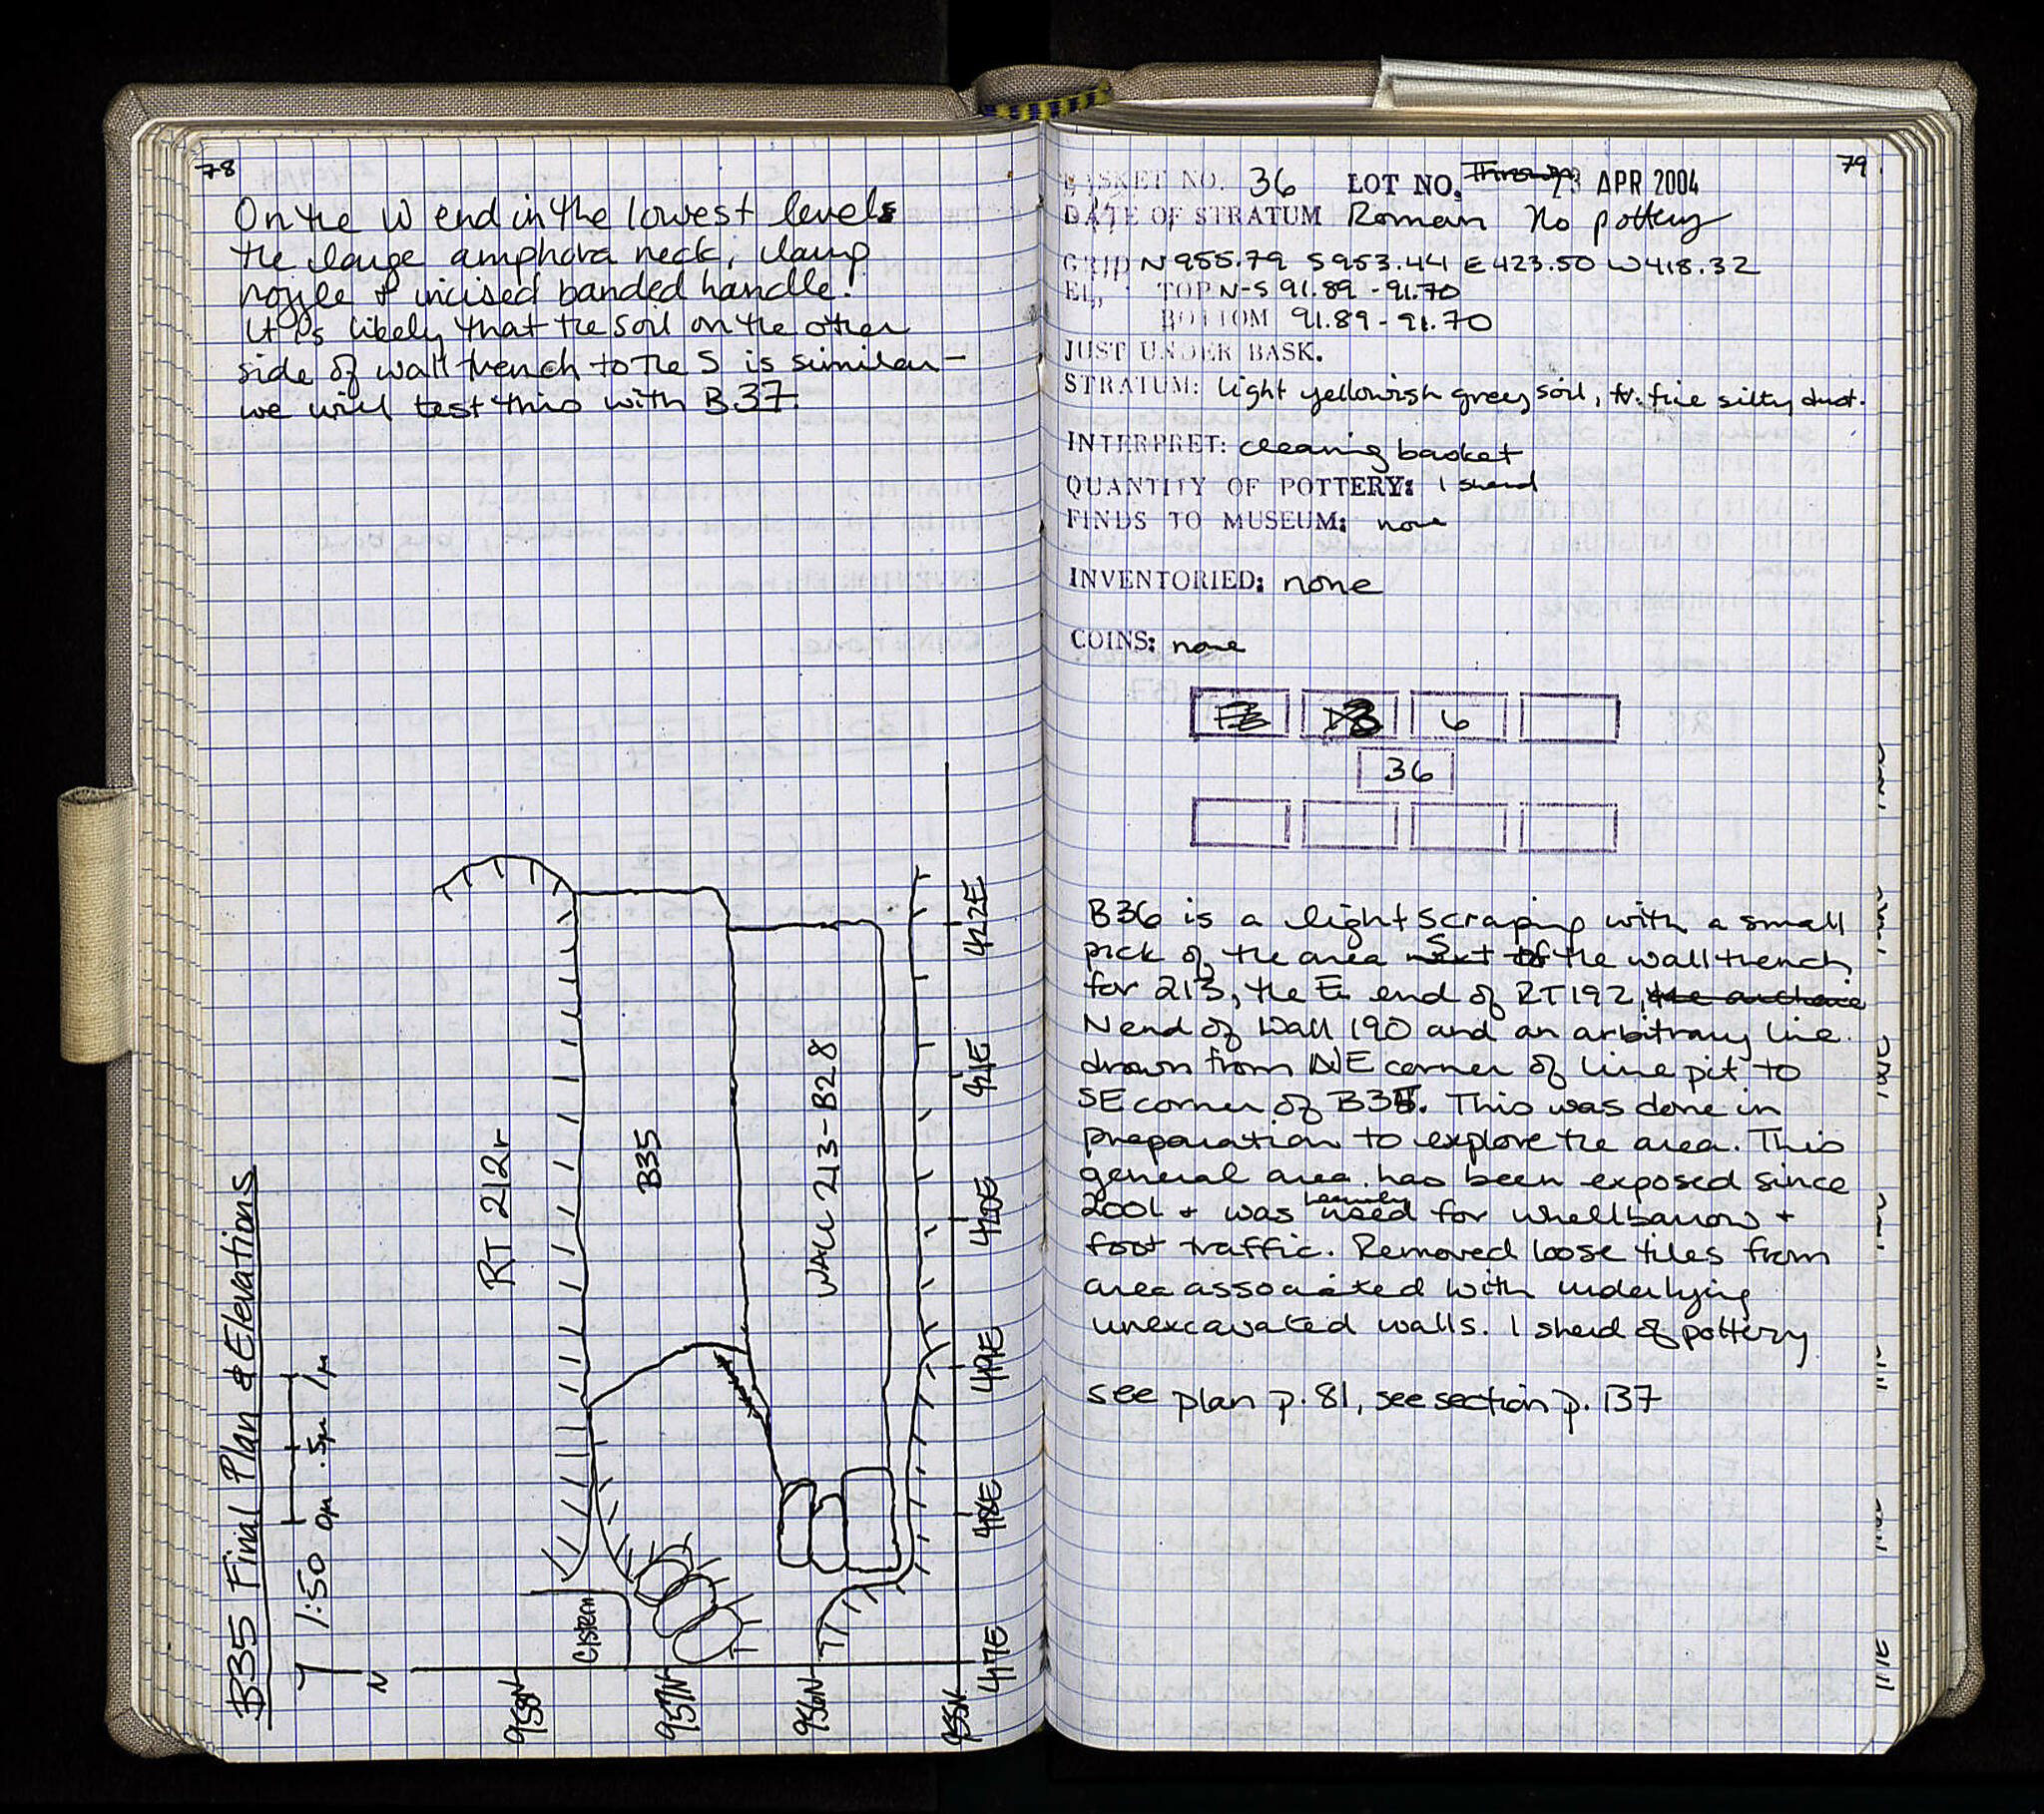 78
On the W end in the lowest levels
the large amphora neck, lamp
nozzle & incised banded handle!
It is likely that the soil on the other
side of wall trench to the S is similar –
we will test this with B37.
B35 Final Plan & Elevations
1:50 0m .5m 1m
N
RT 212r
B35
WALL 213-B28
Cistern
958N
957N
956N
955N
417E
418E
419E
420E
421E
422E
79
BASKET NO. 36 LOT NO. 23 APR 2004
DATE OF STRATUM Roman No pottery
GRID N955.79 S953.44 E423.50 W418.32
EL, TOP N-S 91.89 - 91.70
BOTTOM 91.89 - 91.70
JUST UNDER BASK.
STRATUM: light yellowish grey soil, fine silty dust.
INTERPRET: cleaning basket
QUANTITY OF POTTERY: 1 sherd
FINDS TO MUSEUM: none
INVENTORIED: none
COINS: none
6
36
B36 is a light scraping with a small
pick of the area S of the wall trench
for 213, the E end of RT192,
N end of Wall 190 and an arbitrary line
drawn from NE corner of lime pit to
SE corner of B35. This was done in
preparation to explore the area. This
general area has been exposed since
2001 + was heavily used for whellbarrow +
foot traffic. Removed loose tiles from
area associated with underlying
unexcavated walls. 1 sherd of pottery
see plan p. 81, see section p. 137